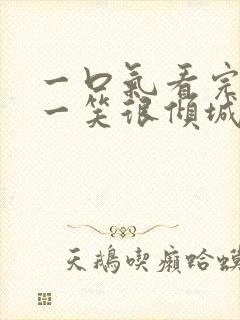 一口氣看完
一笑很傾城
天鵝喫癩蛤蟆